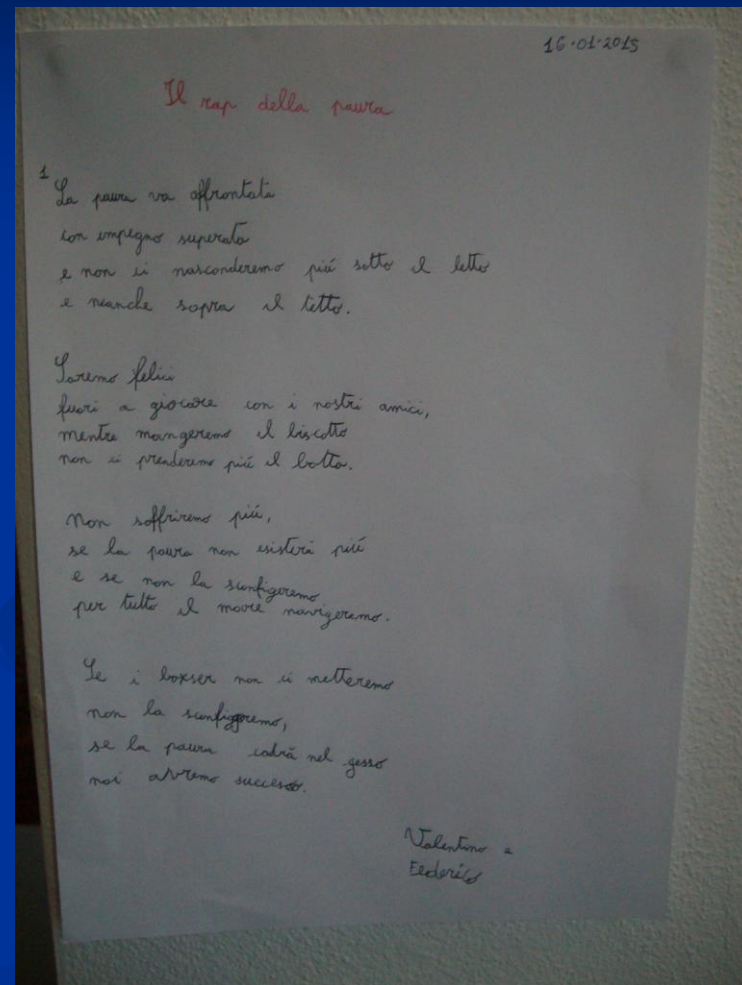 16-01-2015
Il rap della paura
1
La paura va affrontata
con impegno superata
e non ci nasconderemo piú sotto il letto
e neanche sopra il tetto.
Saremo felici
fuori a giocare con i nostri amici,
mentre mangeremo il biscotto
non ci prenderemo piú il botto.
Non soffriremo piú,
se la paura non esisterá piú
e se non la sconfigeremo
per tutto il mare navigeremo.
Se i boxser non ci metteremo
non la sconfiggeremo,
se la paura cadrá nel gesso
noi avremo successo.
Valentino e
Federico